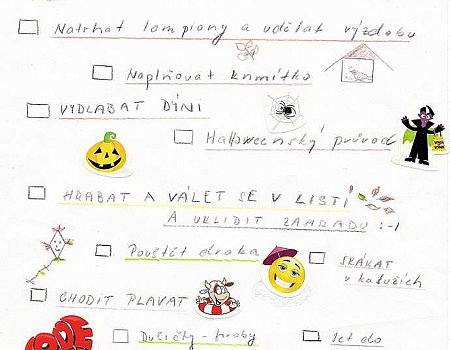 Natrhat lampiony a udělat výzdobu
Naplňovat krmítko
VYDLABAT DÝNI
Halloweenský průvod
HRABAT A VÁLET SE V LISTÍ
A UKLIDIT ZAHRADU :-)
Pouštět draka
SKÁKAT
v kalužích
CHODIT PLAVAT
Dušičky - hroby
Jet do